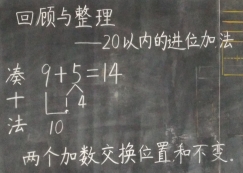 回顾与整理
——20以内的进位加法
凑十法
9+5=14
1 4
10
两个加数交换位置和不变.